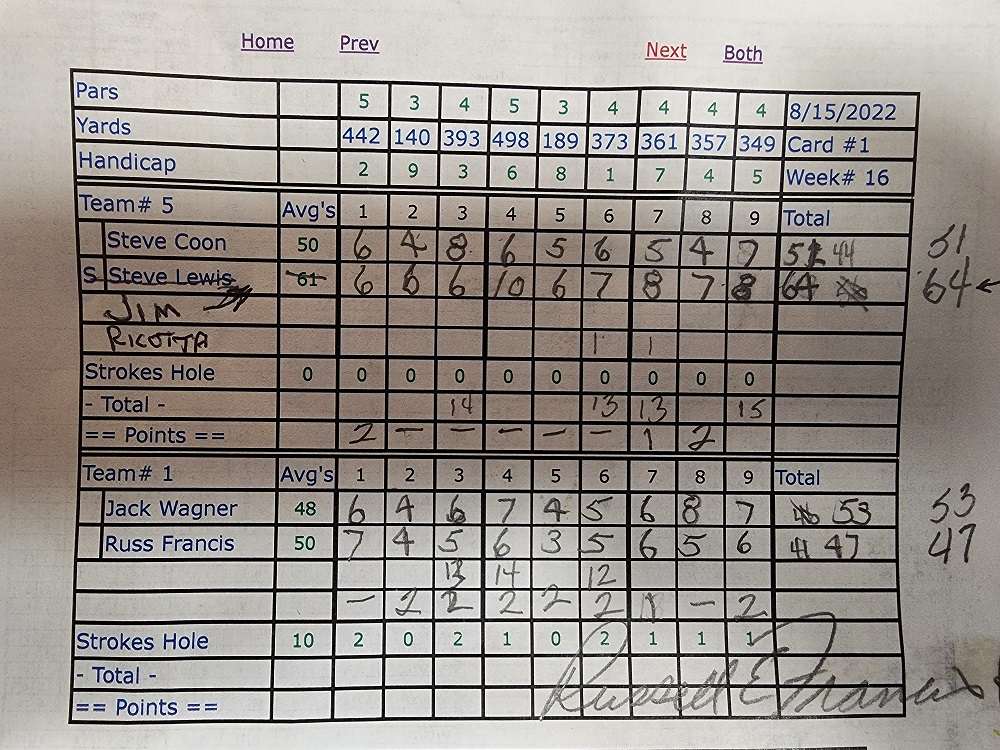 Home Prev Next Both
Pars 5 3 4 5 3 4 4 4 4 8/15/2022
Yards 442 140 393 498 189 373 361 357 349 Card #1
Handicap 2 9 3 6 8 1 7 4 5 Week# 16
Team# 5 Avg's 1 2 3 4 5 6 7 8 9 Total
Steve Coon 50 6 4 8 6 5 6 5 4 7 44 51
S Steve Lewis 61 6 6 6 10 6 7 8 7 8 64 64 ←
JIM
RICOTTA 1 1
Strokes Hole 0 0 0 0 0 0 0 0 0 0
- Total - 14 13 13 15
== Points == 2 — — — — — 1 2
Team# 1 Avg's 1 2 3 4 5 6 7 8 9 Total
Jack Wagner 48 6 4 6 7 4 5 6 8 7 53 53
Russ Francis 50 7 4 5 6 3 5 6 5 6 47 47
13 14 12
— 2 2 2 2 2 1 — 2
Strokes Hole 10 2 0 2 1 0 2 1 1 1
- Total - Russell E Francis
== Points ==